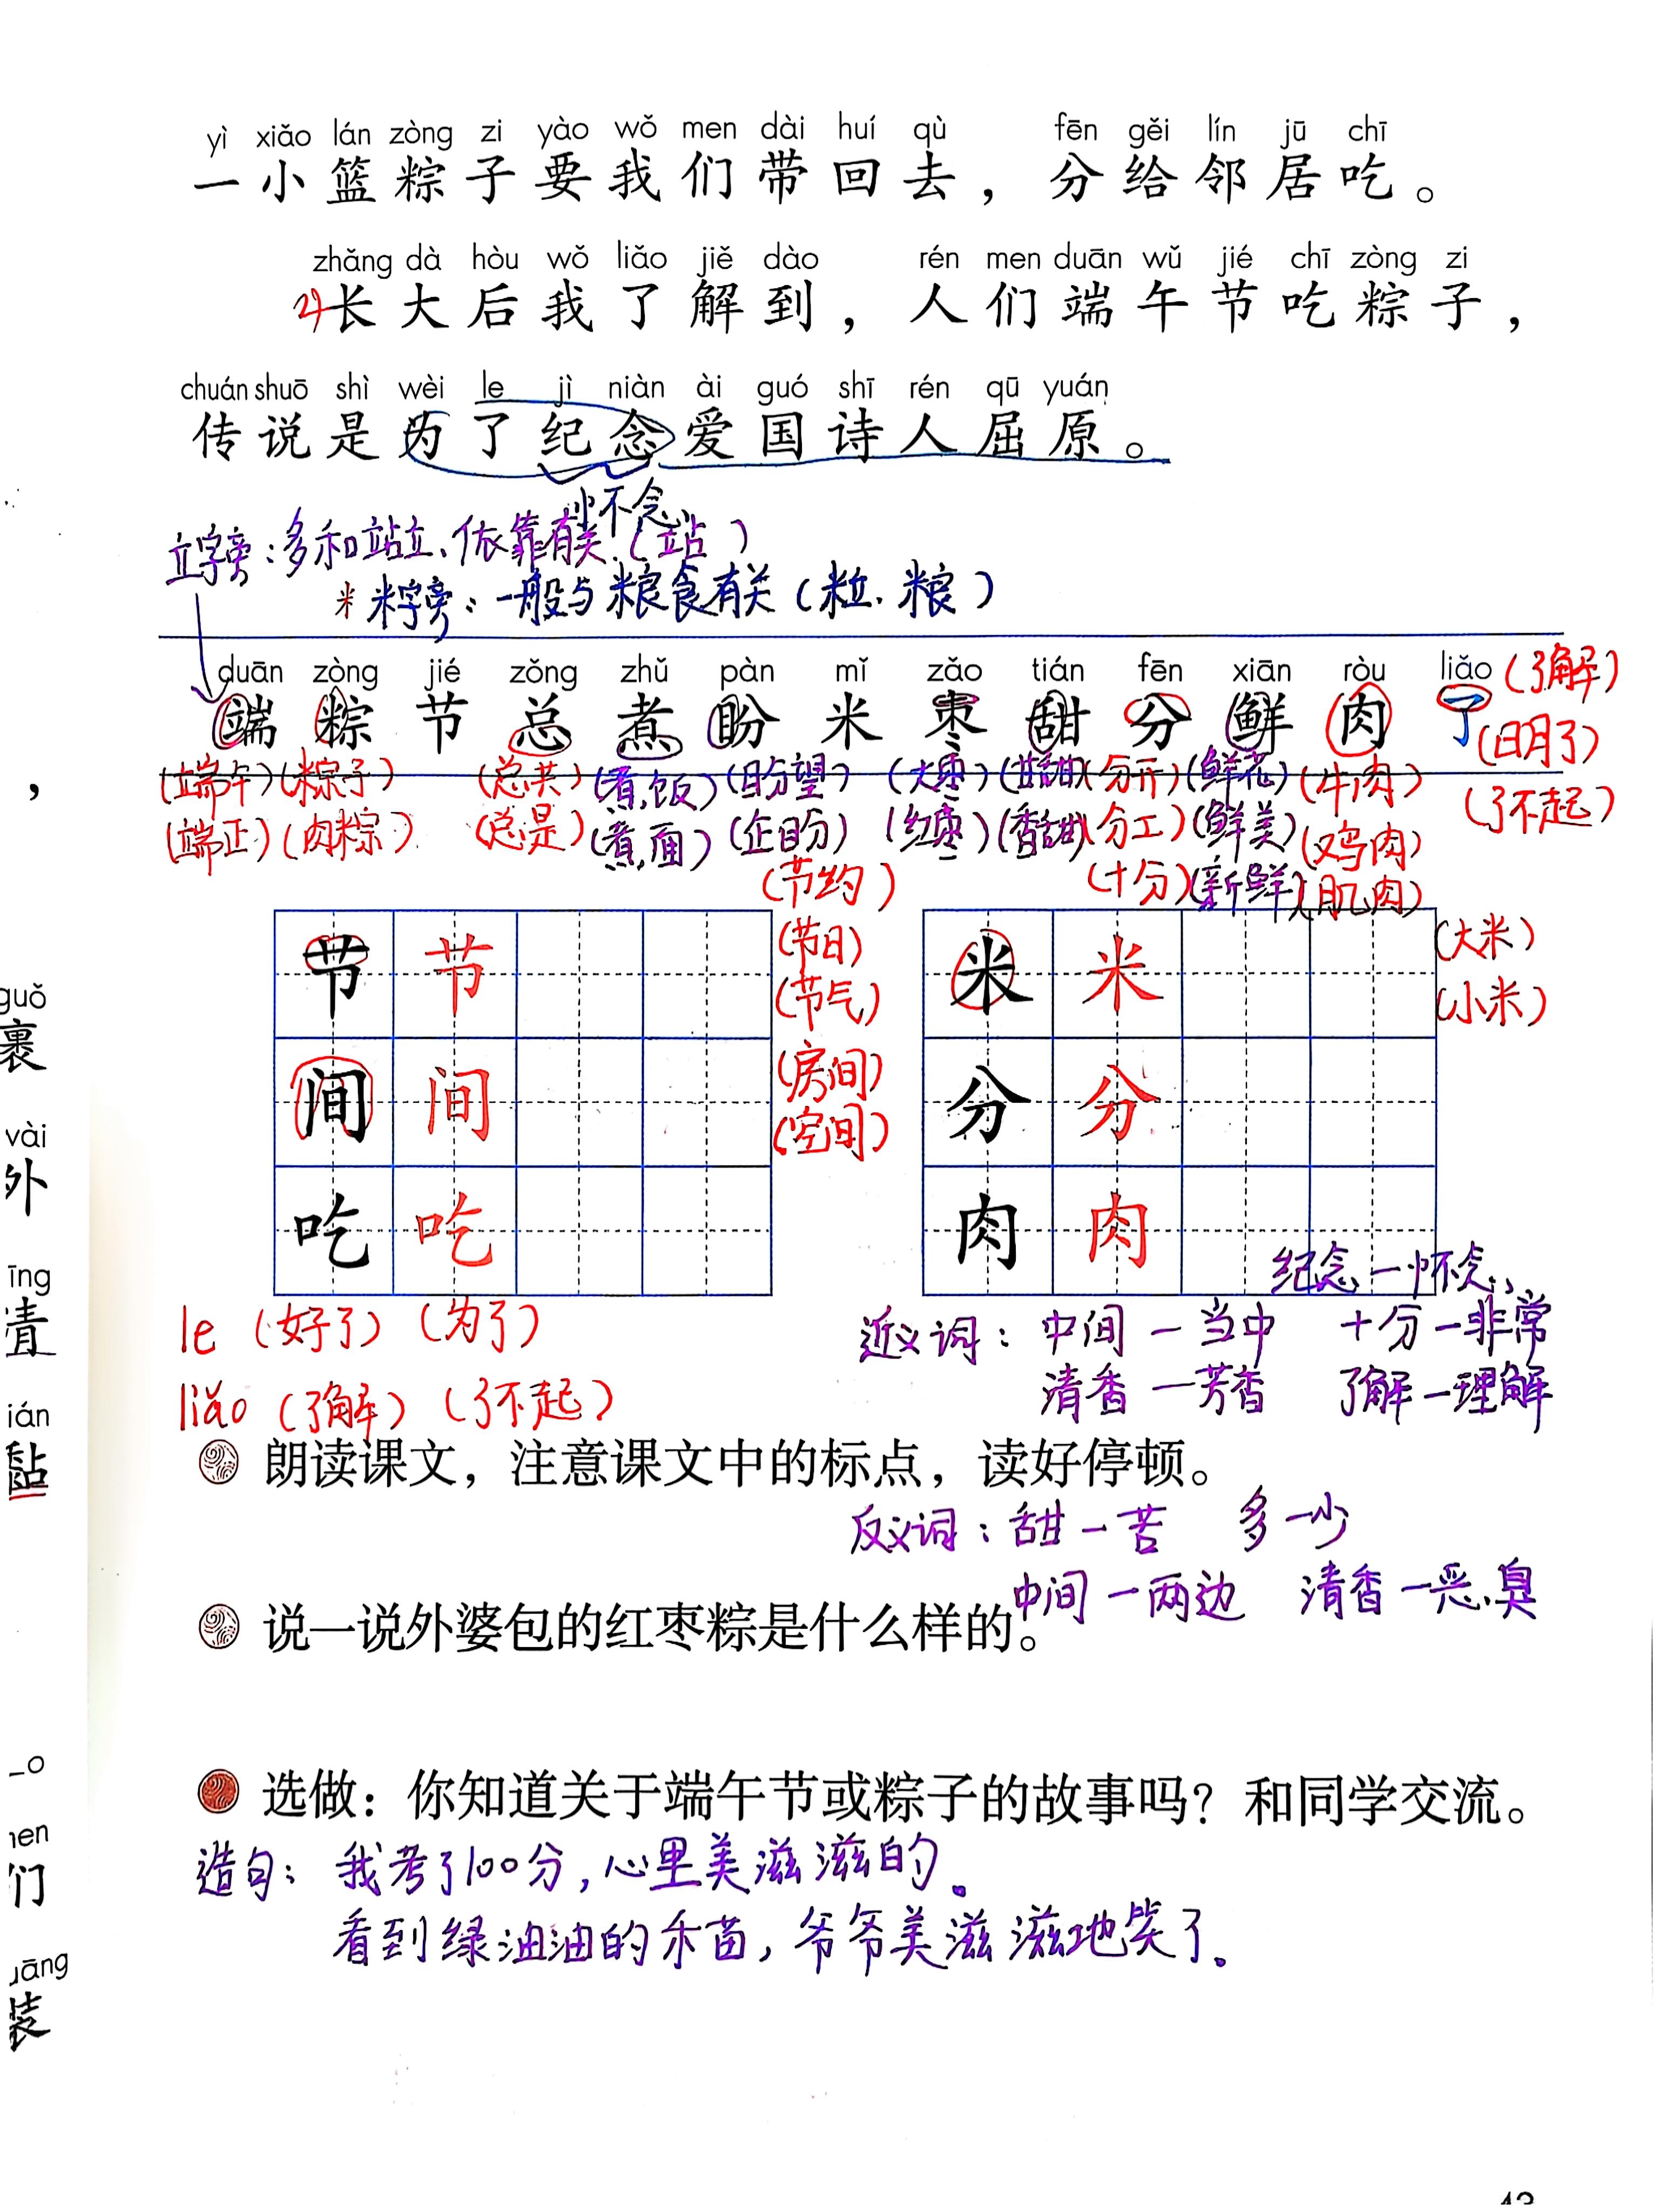 yì xiǎo lán zòng zi yào wǒ men dài huí qù fēn gěi lín jū chī
一小篮粽子要我们带回去，分给邻居吃。
zhǎng dà hòu wǒ liǎo jiě dào rén men duān wǔ jié chī zòng zi
长大后我了解到，人们端午节吃粽子，
chuán shuō shì wèi le jì niàn ài guó shī rén qū yuán
传说是为了纪念爱国诗人屈原。
怀念
立字旁：多和站立、依靠有关（站）
米 米字旁：一般与粮食有关（粒、粮）
duān zòng jié zǒng zhǔ pàn mǐ zǎo tián fēn xiān ròu liǎo
端 粽 节 总 煮 盼 米 枣 甜 分 鲜 肉 了
（了解）
（明了）
（了不起）
（端午）（粽子）（总共）（煮饭）（盼望）（大枣）（甜甜）（分开）（鲜花）（牛肉）
（端正）（肉粽）（总是）（煮面）（企盼）（红枣）（香甜）（分工）（鲜美）（鸡肉）
（节约）（十分）（新鲜）（肌肉）
节 节 （节日）
（节气）
间 间 （房间）
（空间）
吃 吃
米 米 （大米）
（小米）
分 分
肉 肉
纪念—怀念
le（好了）（为了）
近义词：中间—当中 十分—非常
liǎo（了解）（了不起）
清香—芳香 了解—理解
朗读课文，注意课文中的标点，读好停顿。
反义词：甜—苦 多—少
中间—两边 清香—恶臭
说一说外婆包的红枣粽是什么样的。
选做：你知道关于端午节或粽子的故事吗？和同学交流。
造句：我考了100分，心里美滋滋的。
看到绿油油的禾苗，爷爷美滋滋地笑了。
，
guǒ
裹
vài
外
īng
青
ián
们
装